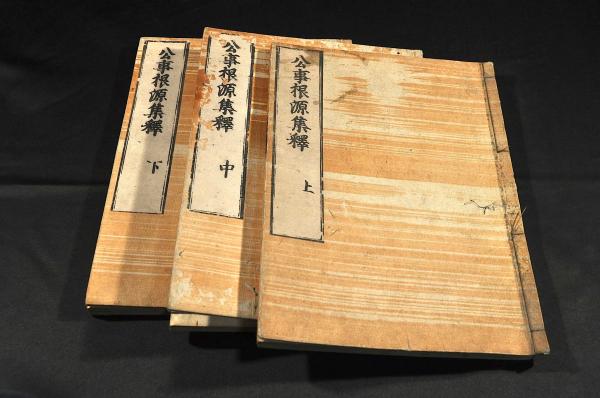 公事根源集釋 上
公事根源集釋 中
公事根源集釋 下